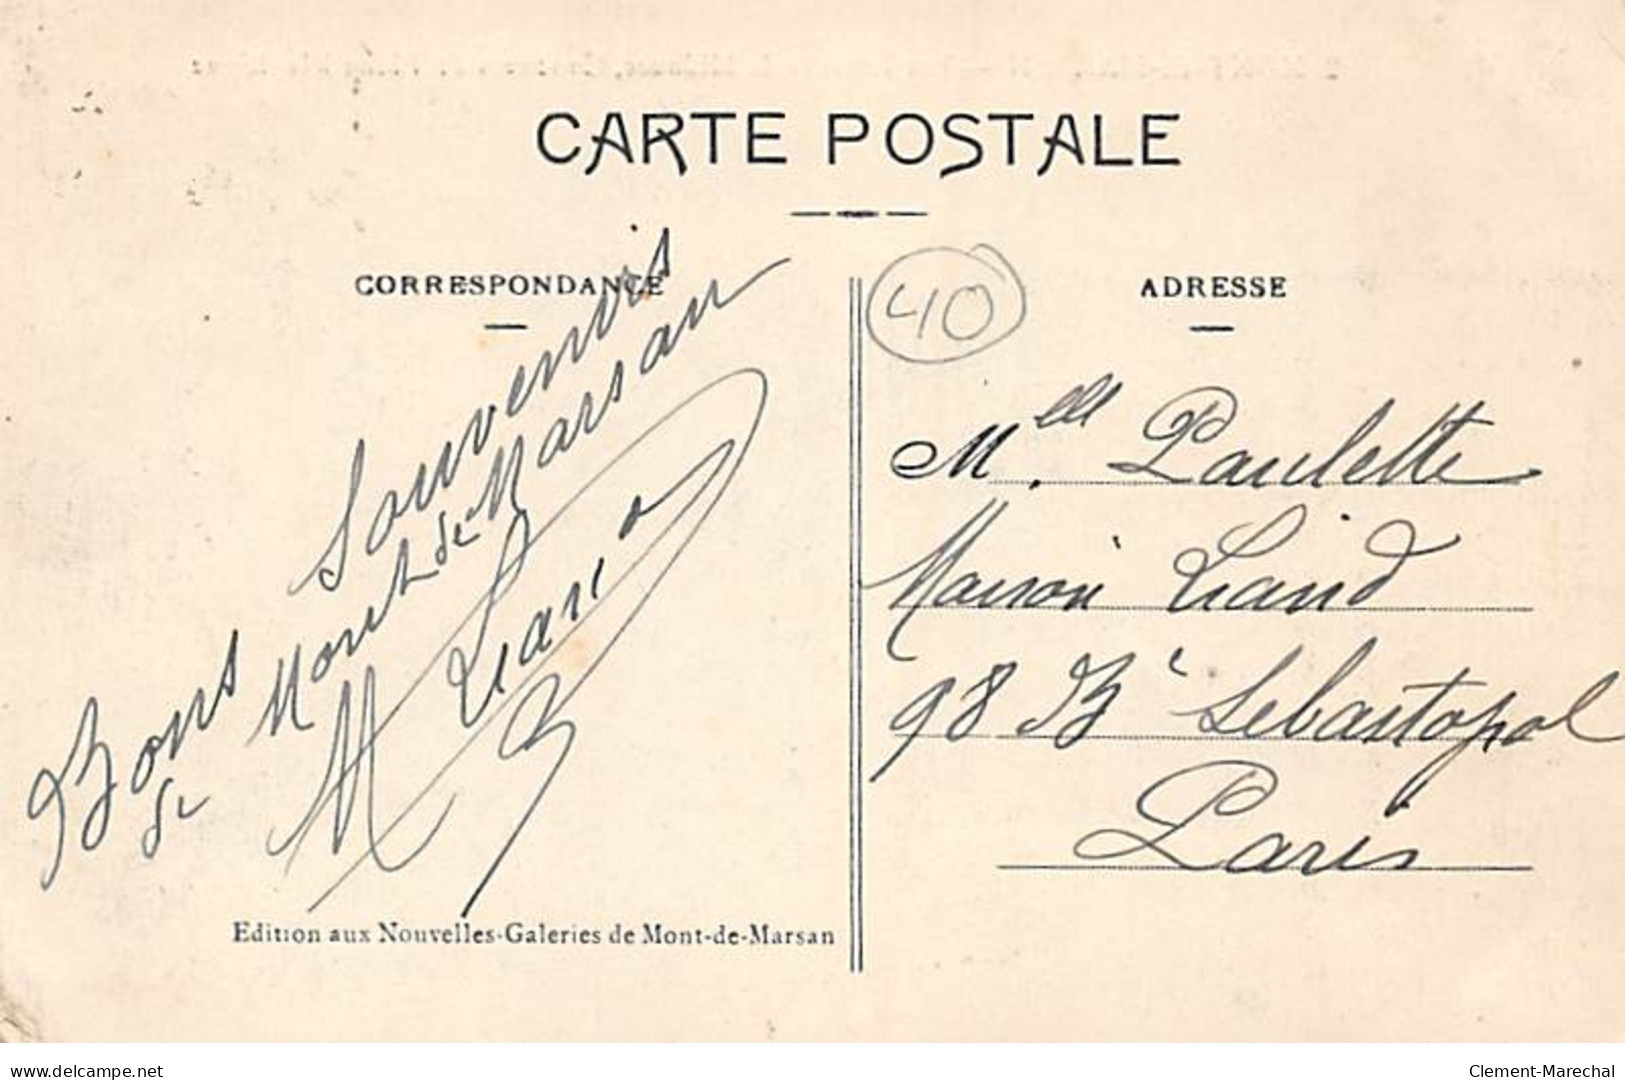 CARTE POSTALE
CORRESPONDANCE
Bons Souvenirs
de Mont de Marsan
M
Edition aux Nouvelles-Galeries de Mont-de-Marsan
40
ADRESSE
Mlle Paulette
Maison
98 Bd Sebastopol
Paris
www.delcampe.net
Clement-Marechal